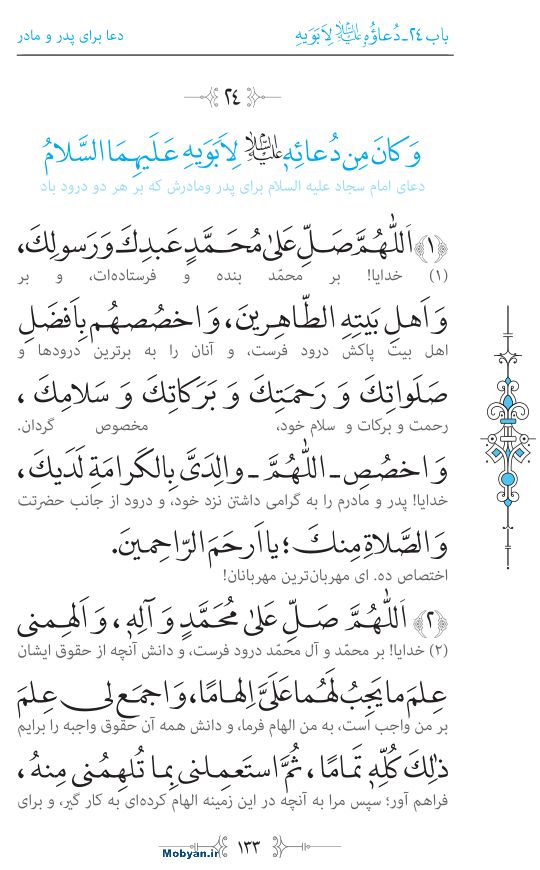 باب ۲۴ـ دُعاؤُهُ عليه السلام لِاَبَوَيهِ
دعا برای پدر و مادر
۲۴
وَ كانَ مِن دُعائِهِ عليه السلام لِاَبَوَيهِ عَلَيهِمَا السَّلامُ
دعای امام سجاد علیه السلام برای پدر ومادرش که بر هر دو درود باد
﴿۱﴾ اَللّٰهُمَّ صَلِّ عَلىٰ مُحَمَّدٍ عَبدِكَ وَ رَسولِكَ،
(۱) خدایا! بر محمّد بنده و فرستاده‌ات، و بر
وَ اَهلِ بَيتِهِ الطّاهِرينَ، وَ اخصُصهُم بِاَفضَلِ
اهل بیت پاکش درود فرست، و آنان را به برترین درودها و
صَلَواتِكَ وَ رَحمَتِكَ وَ بَرَكاتِكَ وَ سَلامِكَ ،
رحمت و برکات و سلام خود، مخصوص گردان.
وَ اخصُصِ ـ اللّٰهُمَّ ـ والِدَىَّ بِالكَرامَةِ لَدَيكَ،
خدایا! پدر و مادرم را به گرامی داشتن نزد خود، و درود از جانب حضرتت
وَ الصَّلاةِ مِنكَ ؛ يا اَرحَمَ الرّاحِمينَ.
اختصاص ده. ای مهربان‌ترین مهربانان!
﴿۲﴾ اَللّٰهُمَّ صَلِّ عَلىٰ مُحَمَّدٍ وَ آلِهٖ ، وَ اَلهِمنى
(۲) خدایا! بر محمّد و آل محمّد درود فرست، و دانش آنچه از حقوق ایشان
عِلمَ ما يَجِبُ لَهُما عَلَىَّ اِلهامًا، وَ اجمَع لى عِلمَ
بر من واجب است، به من الهام فرما، و دانش همه آن حقوق واجبه را برایم
ذٰلِكَ كُلِّهٖ تَمامًا ، ثُمَّ استَعمِلنى بِما تُلهِمُنى مِنهُ ،
فراهم آور؛ سپس مرا به آنچه در این زمینه الهام کرده‌ای به کار گیر، و برای
۱۳۳
Mobyan.ir